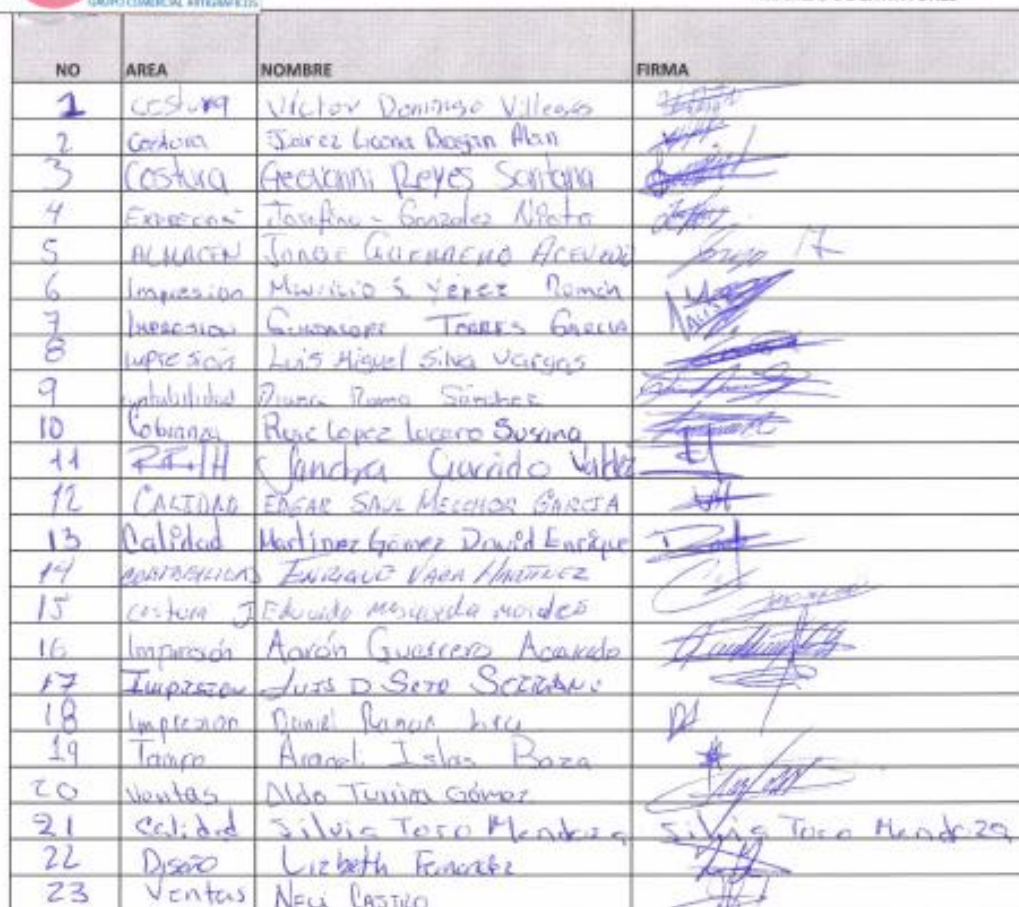 GRUPO COMERCIAL ARTIGRAFICOS
NO AREA NOMBRE FIRMA
1 costura Víctor Domingo Villegas
2 Costura Juarez Licona Alan
3 Costura Geovanni Reyes Santana
4 Josefina Gonzalez
5 ALMACEN JORGE GUERRERO ACEVEDO
6 Impresion Mauricio S Yepez Román
7 IMPRESION GUADALUPE TORRES GARCIA
8 Impresión Luis Miguel Silva Vargas
9 Contabilidad Diana Sánchez
10 Cobranza Lopez Lucero Susana
11 RRHH Sandra Garrido
12 CALIDAD EDGAR SAUL MELCHOR GARCIA
13 Calidad Martinez Gómez David Enrique
14 ENRIQUE VARA MARTINEZ
15 costura J Eduardo Morales
16 Impresión Aarón Guerrero
17 Impresion LUIS D SOTO
18 Impresion Daniel
19 Tampo Araceli Islas
20 Ventas Aldo Gómez
21 Calidad Silvia Toro Mendoza Silvia Toro Mendoza
22 Diseño Lizbeth
23 Ventas CASTRO